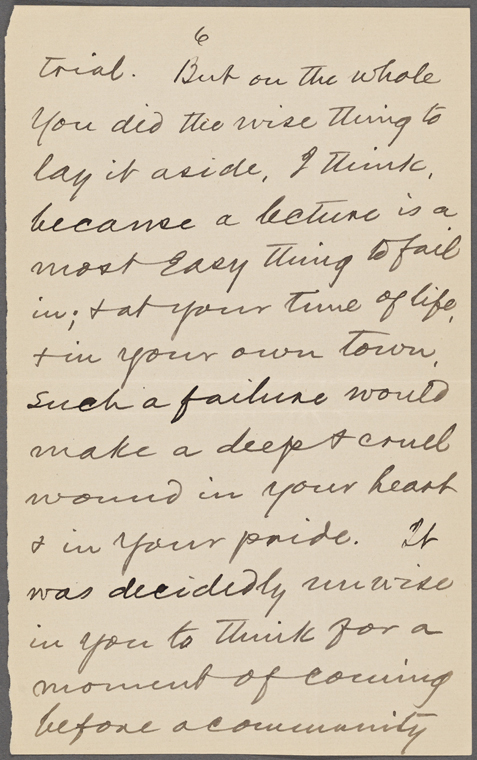 6
trial. But on the whole
you did the wise thing to
lay it aside, I think,
because a lecture is a
most easy thing to fail
in; & at your time of life,
& in your own town,
such a failure would
make a deep & cruel
wound in your heart
& in your pride. It
was decidedly unwise
in you to think for a
moment of coming
before a community